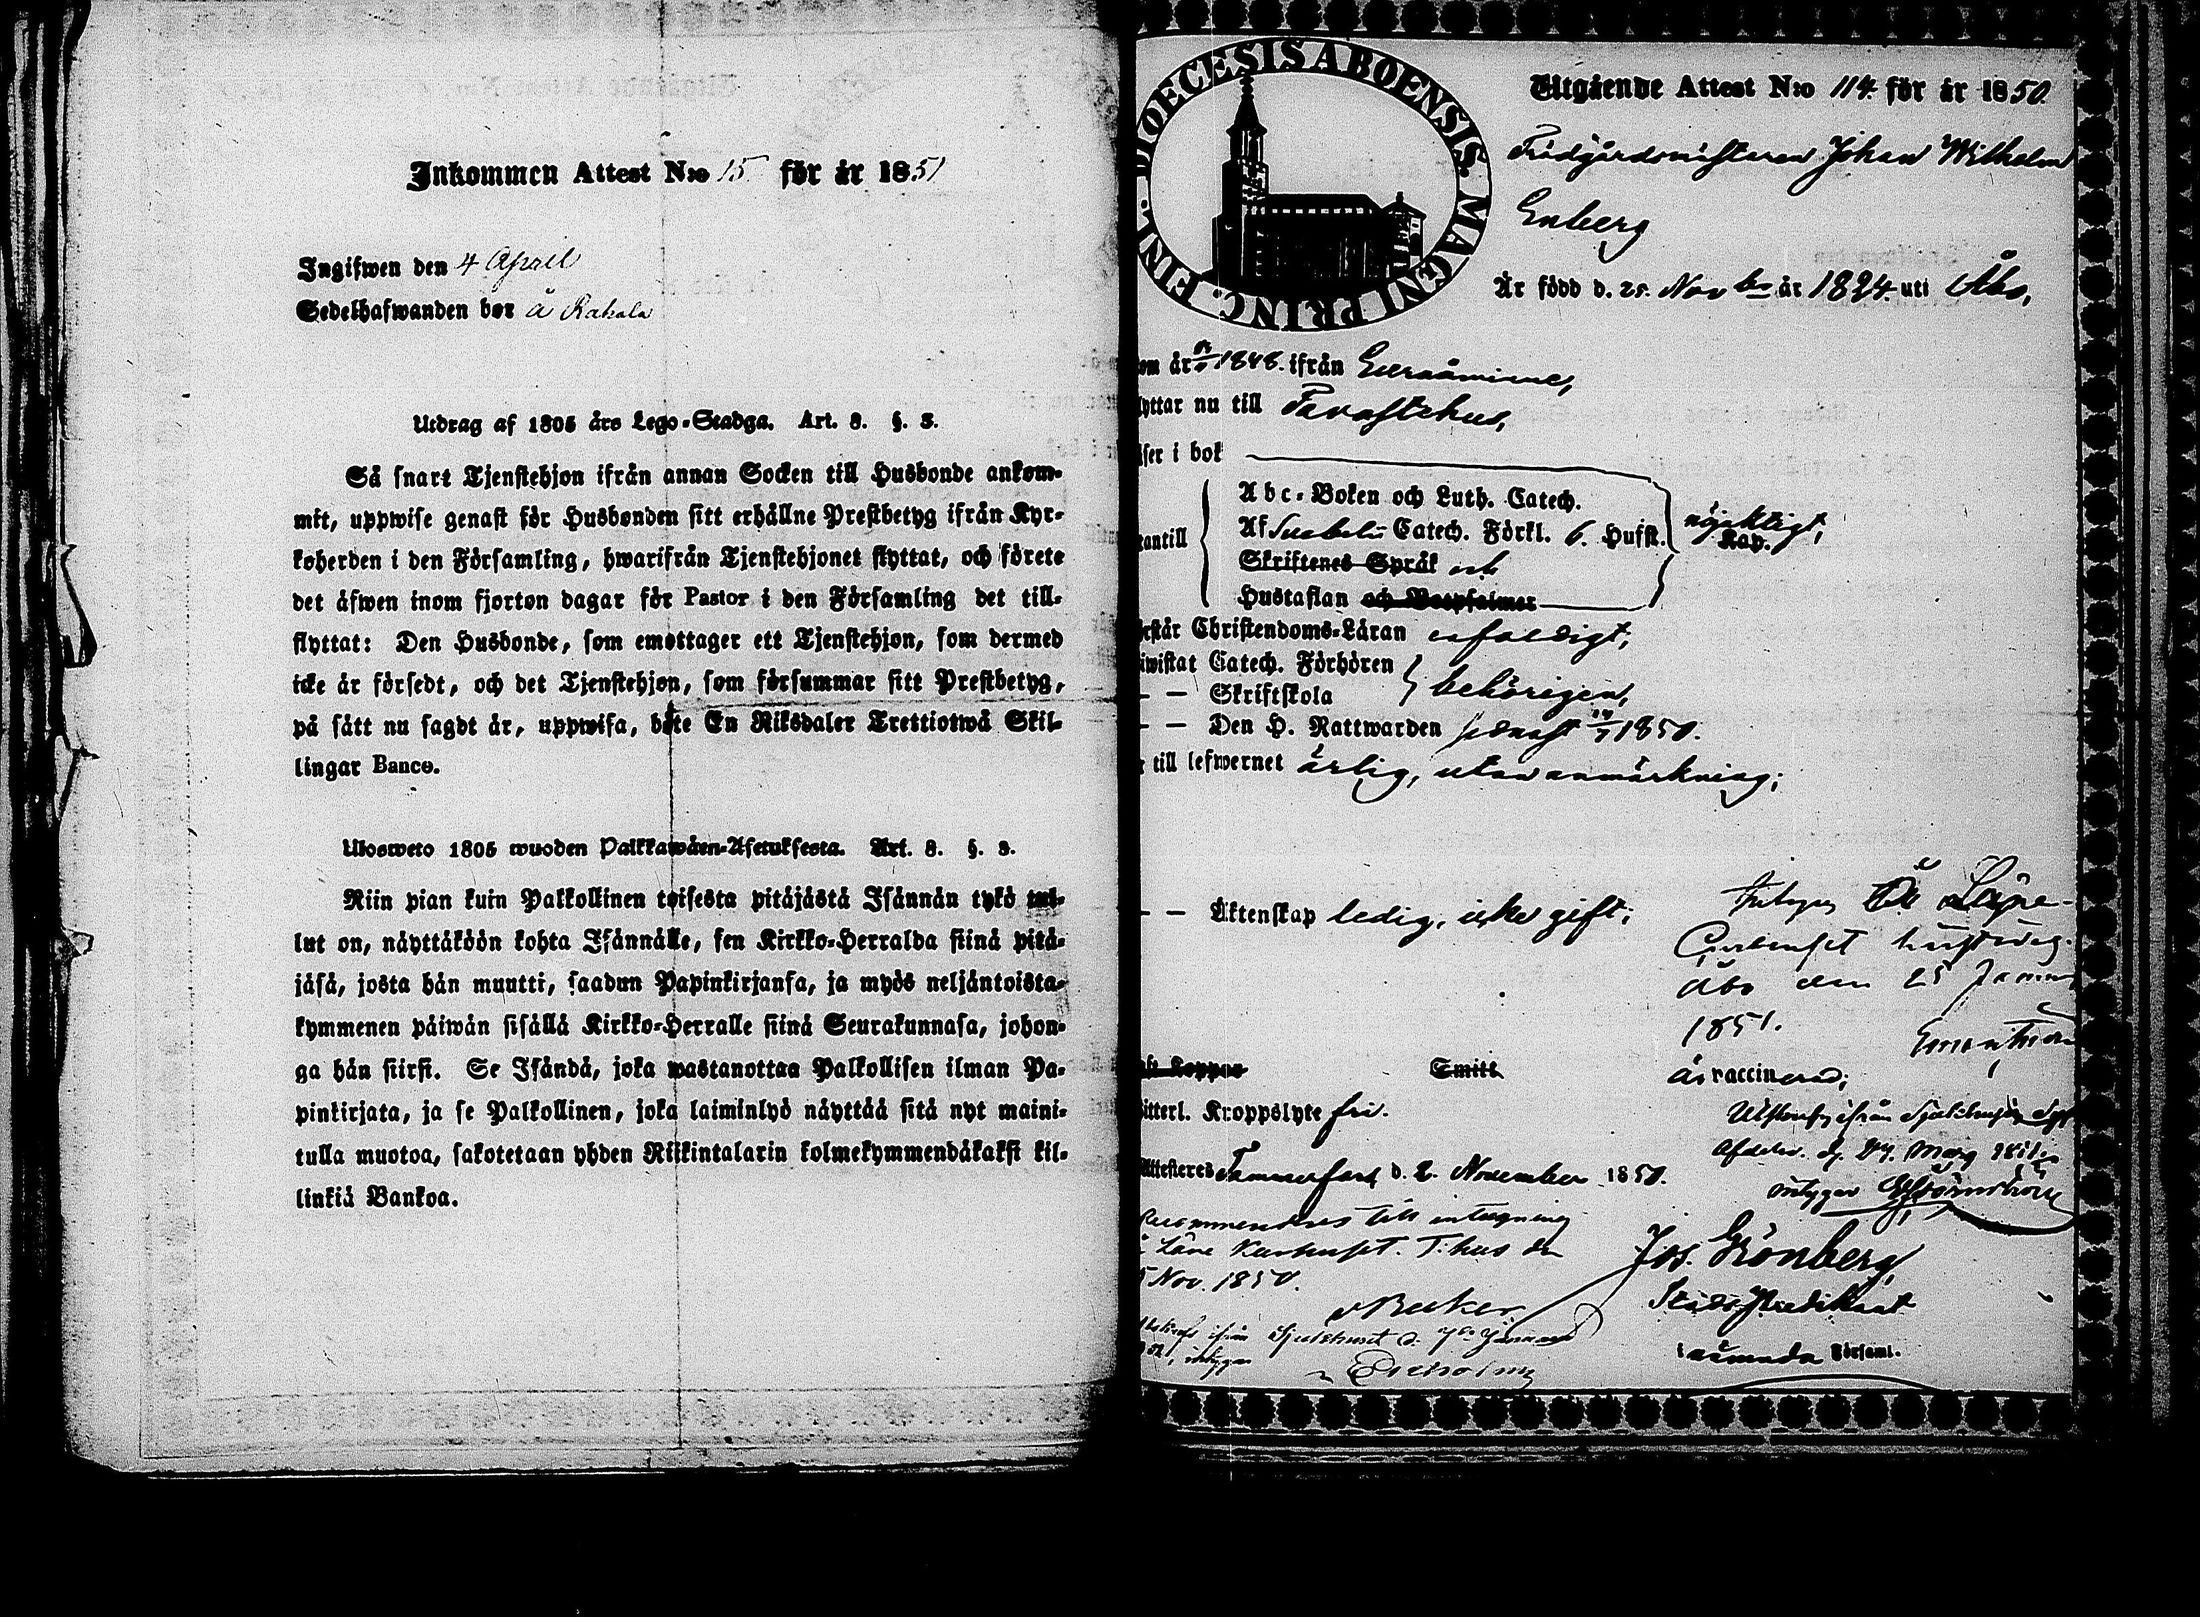 Inkommen Attest N:o 15 för år 1851
Ingifwen den 4 April
Sedelhafwanden bor å Rahala
Utdrag af 1805 års Lego-Stadga. Art. 8. §. 3.
Så snart Tjenstehjon ifrån annan Socken till Husbonde ankom-
mit, uppwise genast för Husbonden sitt erhållne Prestbetyg ifrån Kyr-
koherden i den Församling, hwarifrån Tjenstehjonet flyttat, och förete
det äfwen inom fjorton dagar för Pastor i den Församling det till-
flyttat: Den Husbonde, som emottager ett Tjenstehjon, som dermed
icke är försedt, och det Tjenstehjon, som försummar sitt Prestbetyg,
på sätt nu sagdt är, uppwisa, böte En Riksdaler Trettiotwå Skil-
lingar Banco.
Ulosweto 1805 wuoden Palkkawäen-Asetuksesta. Art. 8. §. 3.
Niin pian kuin Palkollinen toisesta pitäjästä Isännän tykö tul-
lut on, näyttäköön kohta Isännälle, sen Kirkko-Herralda siinä pitä-
jäsä, josta hän muutti, saadun Papinkirjansa, ja myös neljäntoista-
kymmenen päiwän sisällä Kirkko-Herralle siinä Seurakunnasa, johon-
ga hän siirsi. Se Isändä, joka wastanottaa Palkollisen ilman Pa-
pinkirjata, ja se Palkollinen, joka laiminlyö näyttää sitä nyt maini-
tulla muotoa, sakotetaan yhden Riikintalarin kolmekymmendäkaksi kil-
linkiä Bankoa.
DIOECESIS ABOENSIS. MAGNI PRINC. FINL.
Utgående Attest N:o 114. för år 1850.
Trädgårdsmästaren Johan Wilhelm
Enberg
Är född d. 25. Novbr år 1824. uti Åbo,
om år 1848. ifrån Euraåminne,
yttar nu till Tavastehus,
ser i bok
antill
Abc-Boken och Luth. Catech.
Af Svebelii Catech. Förkl. 6. Hufst.
nöjaktigt,
Kap.
Skriftenes Språk och
Hustaflan och Botpsalmer
rstår Christendoms-Läran enfaldigt,
iwistat Catech. Förhören
— — Skriftskola
behörigen,
— — Den H. Nattwarden sednast 1850.
till lefwernet ärlig, utan anmärkning;
— — Äktenskap ledig, icke gift;
Intagen å Läne-
Curhuset
Åbo den 25
1851.
aft Koppor Smitt är vaccinerad;
itterl. Kroppslyte fri.
Utskrefs ifrån
Attesteres Tammerfors d. 2. November 1850.
Recommenderas till intagning
Läne Kurhuset. T:hus den
Nov. 1850.
Becker
Jos. Grönberg
Stads Predikant
i nämnda Församl.